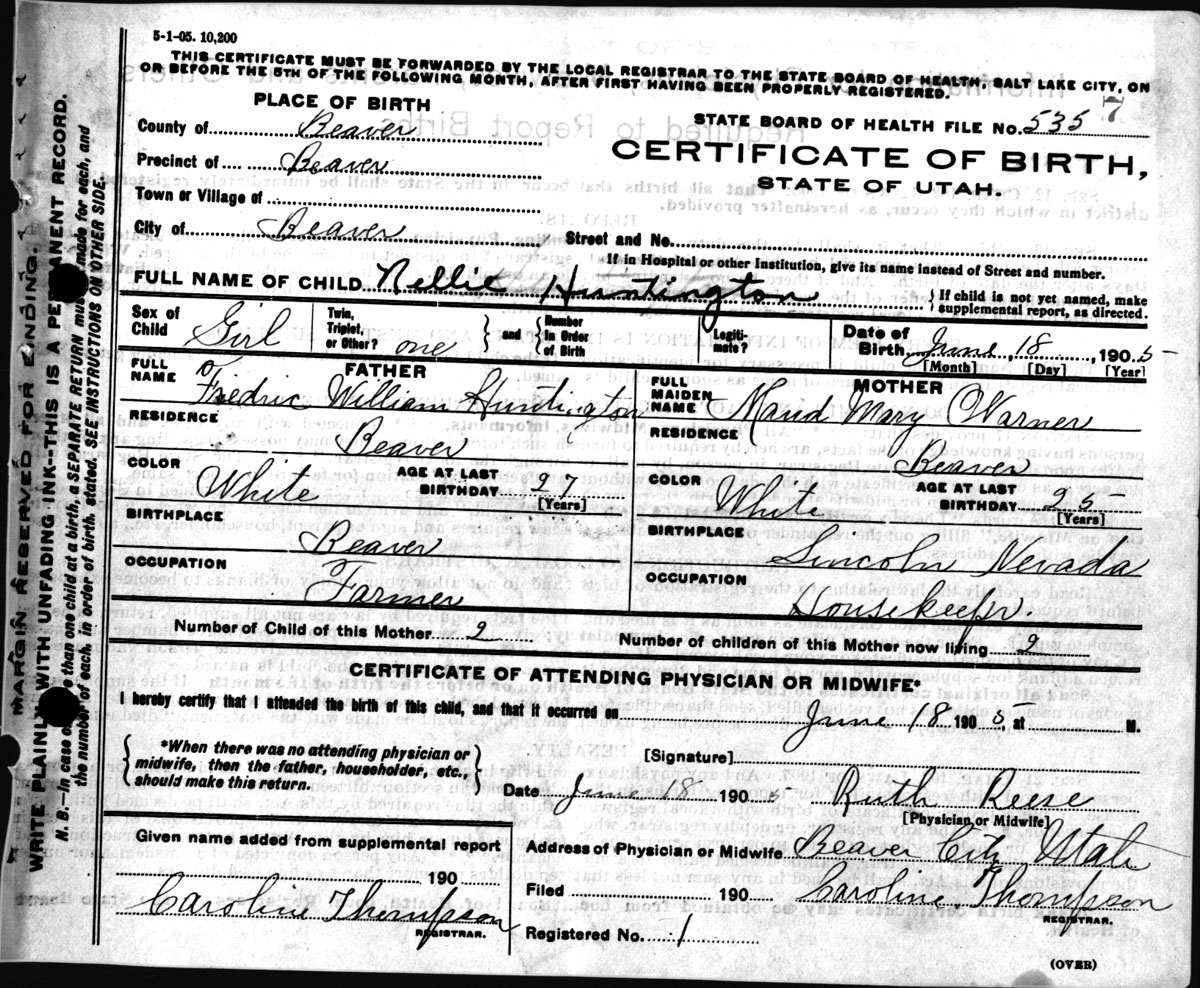 5-1-05. 10,200
THIS CERTIFICATE MUST BE FORWARDED BY THE LOCAL REGISTRAR TO THE STATE BOARD OF HEALTH, SALT LAKE CITY, ON
OR BEFORE THE 5TH OF THE FOLLOWING MONTH, AFTER FIRST HAVING BEEN PROPERLY REGISTERED.
PLACE OF BIRTH
STATE BOARD OF HEALTH FILE No. 535 7
County of Beaver
CERTIFICATE OF BIRTH,
STATE OF UTAH.
Precinct of Beaver
Town or Village of
City of Beaver Street and No.
If in Hospital or other Institution, give its name instead of Street and number.
FULL NAME OF CHILD Nellie Huntington { If child is not yet named, make supplemental report, as directed.
Sex of Child Girl Twin, Triplet, or Other? one } and { Number in Order of Birth Legitimate? Date of Birth June 18 1905
[Month] [Day] [Year]
FATHER
FULL NAME Fredric William Huntington
RESIDENCE Beaver
COLOR White AGE AT LAST BIRTHDAY 27
[Years]
BIRTHPLACE Beaver
OCCUPATION Farmer
MOTHER
FULL MAIDEN NAME Maud Mary Warner
RESIDENCE Beaver
COLOR White AGE AT LAST BIRTHDAY 25
[Years]
BIRTHPLACE Lincoln Nevada
OCCUPATION Housekeepr.
Number of Child of this Mother 2 Number of children of this Mother now living 2
CERTIFICATE OF ATTENDING PHYSICIAN OR MIDWIFE*
I hereby certify that I attended the birth of this child, and that it occurred on June 18 1905, at M.
{ *When there was no attending physician or midwife, then the father, householder, etc., should make this return. }
[Signature]
Date June 18 190 5 Ruth Reese
[Physician, or Midwife]
Given name added from supplemental report
190
Caroline Thompson
REGISTRAR.
Address of Physician or Midwife Beaver City Utah
Filed 190 Caroline Thompson
REGISTRAR.
Registered No. 1
(OVER)
MARGIN RESERVED FOR BINDING.
WRITE PLAINLY WITH UNFADING INK--THIS IS A PERMANENT RECORD.
N. B.--In case of more than one child at a birth, a SEPARATE RETURN must be made for each, and
the number of each, in order of birth, stated. SEE INSTRUCTIONS ON OTHER SIDE.